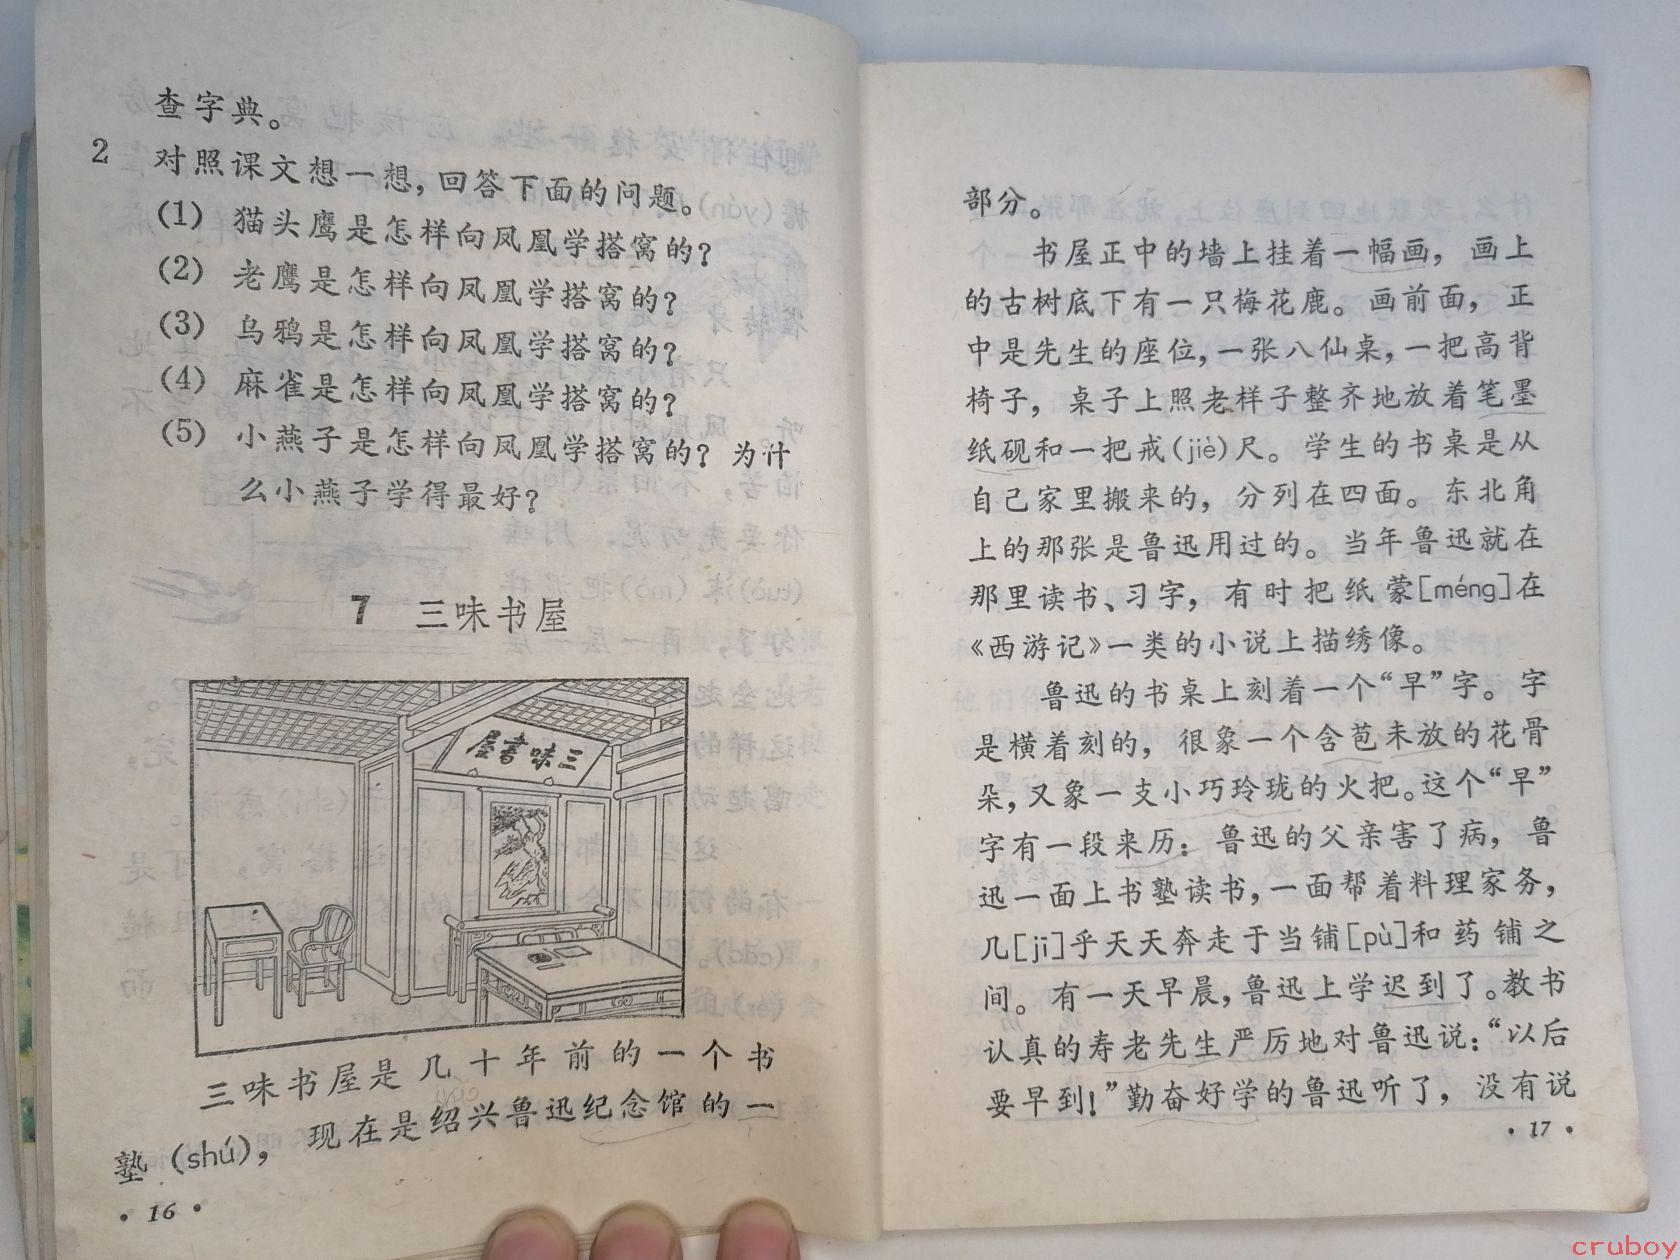 查字典。
2 对照课文想一想，回答下面的问题。
(1) 猫头鹰是怎样向凤凰学搭窝的？
(2) 老鹰是怎样向凤凰学搭窝的？
(3) 乌鸦是怎样向凤凰学搭窝的？
(4) 麻雀是怎样向凤凰学搭窝的？
(5) 小燕子是怎样向凤凰学搭窝的？为什
么小燕子学得最好？
7 三味书屋
屋書味三
三味书屋是几十年前的一个书
塾(shú)，现在是绍兴鲁迅纪念馆的一
·16·
部分。
书屋正中的墙上挂着一幅画，画上
的古树底下有一只梅花鹿。画前面，正
中是先生的座位，一张八仙桌，一把高背
椅子，桌子上照老样子整齐地放着笔墨
纸砚和一把戒(jiè)尺。学生的书桌是从
自己家里搬来的，分列在四面。东北角
上的那张是鲁迅用过的。当年鲁迅就在
那里读书、习字，有时把纸蒙[méng]在
《西游记》一类的小说上描绣像。
鲁迅的书桌上刻着一个“早”字。字
是横着刻的，很象一个含苞未放的花骨
朵，又象一支小巧玲珑的火把。这个“早”
字有一段来历：鲁迅的父亲害了病，鲁
迅一面上书塾读书，一面帮着料理家务，
几[jī]乎天天奔走于当铺[pù]和药铺之
间。有一天早晨，鲁迅上学迟到了。教书
认真的寿老先生严厉地对鲁迅说：“以后
要早到！”勤奋好学的鲁迅听了，没有说
·17·
cruboy